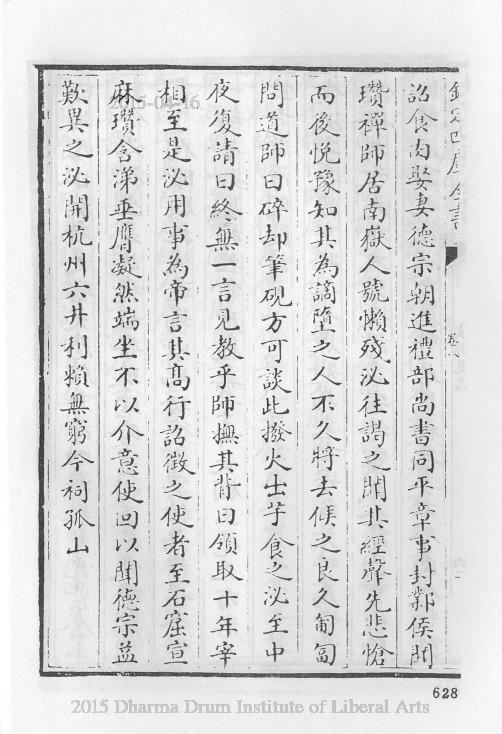 欽定四庫全書
卷八
詔食肉娶妻德宗朝進禮部尚書同平章事封鄴侯聞
瓚禪師居南嶽人號懶殘泌往謁之聞其經聲先悲愴
而後悅豫知其為謫墮之人不久將去候之良久匍匐
問道師曰碎却筆硯方可談此撥火士芋食之泌至中
夜復請曰終無一言見教乎師撫其背曰領取十年宰
相至是泌用事為帝言其高行詔徵之使者至石窟宣
麻瓚含涕垂膺凝然端坐不以介意使回以聞德宗益
歎異之泌開杭州六井利賴無窮今祠孤山
2015-04-16
628
2015 Dharma Drum Institute of Liberal Arts